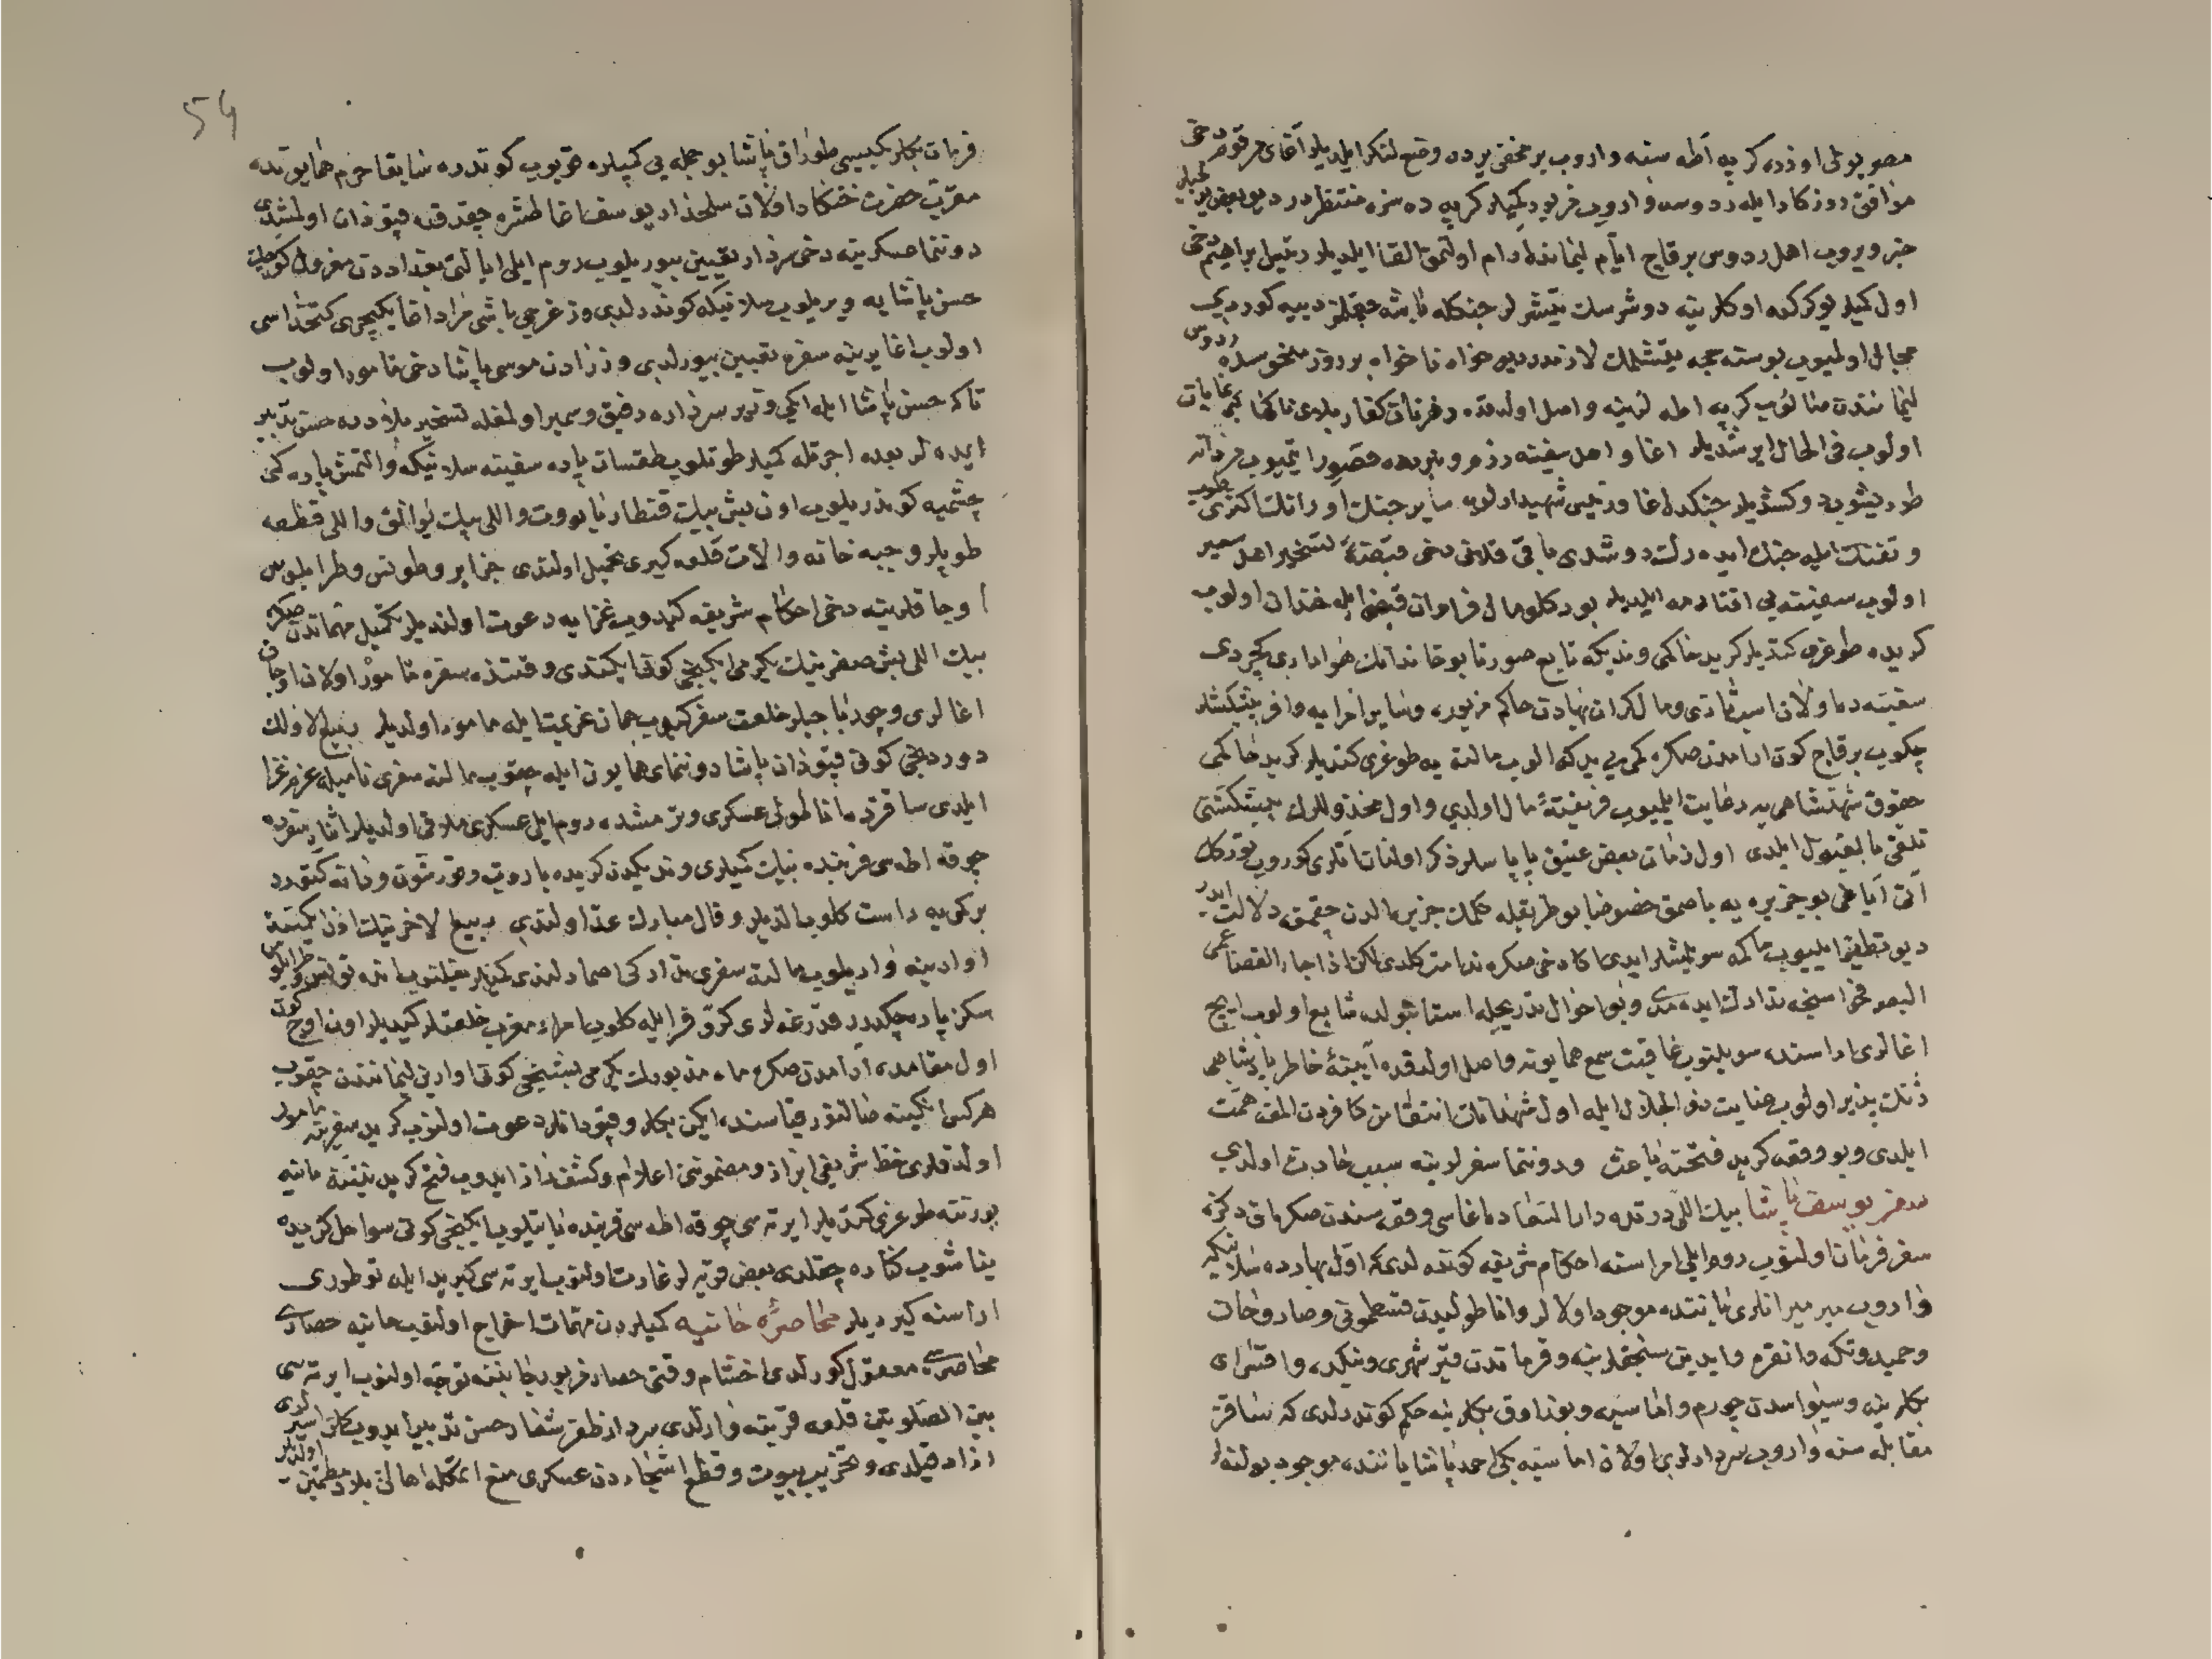 مصر یولی اوزره کرپه اطه سنه واروب بر مخفی یرده وضع لنکر ایلدیلر آغای مرقوم دخی
موافق روزکار ایله ردوسه واروب مزبور کمیلر کرپه ده سزه منتظردر دیو بعض یولجیلر
خبر ویروب اهل ردوس برقاج ایام لیمانده آرام اولنمق القا ایلدیلر رئیس ابراهیم دخی
اول کمیلر یوکرکدر اوکلرینه دوشرسك یتیشرلر جنکله باشه چقلمز دییه کوردی
مجال اولمیوب بوسنه حجه یتشمك لازمدر دیو خواه ناخواه بر روز منحوسده ردوس
لیمانندن چقوب کرپه اطه لرینه واصل اولدقده
اولوب فی الحال ایرشدیلر اغا و اهل سفینه رزم و نبردده قصور ایتمیوب مردانه
طوریشوب دوکشدیلر جنکده اغا و رئیس شهید اولوب سایر جنك اورانلك اکثری
و تفنك ایله جنك ایده رك دوشدی باقی قلانی دخی قبضهٔ تسخیر اهل سعیر
اولوب سفینه یی اقتارمه ایلدیلر بو دکلو مال فراوان قبض ایله خندان اولوب
کریده طوغری کتدیلر کرید حاکمی وندیکه تابع صورتا بو خاندانك هوادارى کچردی
سفینه ده اولان اسب تازی و مال کران بهادن حاکم مزبوره و سایر امرایه وافر پیشکشلر
چکوب برقاج کون ارامدن صکره کمی یی یدکه الوب مالته یه طوغری کتدیلر کرید حاکمی
حقوق شهنشاهی یه رعایت ایلمیوب فریفتهٔ مال اولدی و اول مخذوللرك پیشکشنی
تلقی بالقبول ایلدی اول زمان بعض عتیق پاپاسلر ذکر اولنان اتلری کوروب تورکك
آتی ایاغی بو جزیره یه باصمق خصوصا بو طریقله کلمك جزیره الدن چقمغه دلالت ایدر
دیو تطیر ایلیوب حاکمه سویلمشلر ایدی اکا دخی صکره ندامت کلدی لکن اذا جاء القضا عمی
البصر فحواسنجه تدارك ایده مدی و بو احوال تدریجله استانبولده شایع اولوب ایچ
اغالری اراسنده سویلنوب عاقبت سمع همایونه واصل اولدقده آیینهٔ خاطر پادشاهی
ژنك پذیر اولوب عنایت ذو الجلال ایله اول شهیدانك انتقامن کافردن المغه همت
ایلدی و بو وقعه کرید فتحنه باعث و دونانما سفرلرینه سبب حادث اولدی
سفر یوسف پاشا بیك اللی درتده دار السعاده اغاسی وقعه سندن صکره اق دکزه
سفر فرمان اولنوب روم ایلی امراسنه احکام شریفه کوندرلدی که اول بهارده سلانیکه
واروب میر میرانلری یاننده موجود اولالر و اناطولیدن قسطمونی و صاروخان
و حمید و تکه و انقره و ایدین سنجقلرینه و قرماندن قیرشهری و نیکده و اقسرای
بکلرینه و سیواسدن چورم و اماسیه و بوزاوق بکلرینه حکم کوندرلدی که ساقز
مقابله سنه واروب سردارلری اولان اماسیه بکی احمد پاشا یاننده موجود بولنه لر
54
قرمان بکلربکیسی طوراق پاشا بو جمله یی کمیلره قویوب کوندره سابقا حرم همایونده
مقرب حضرت خنکار اولان سلحدار یوسف اغا طشره چقدقده قپودان اولمشدی
دونانما عسکرینه دخی سردار تعیین بیوریلوب روم ایلی ایالتی بغداددن معزول کوچك
حسن پاشایه ویریلوب سلانیکه کوندرلدی و زغرجی باشی مراد اغا یکیچری کتخداسی
اولوب اغا یرینه سفره تعیین بیورلدی وزرادن موسی پاشا دخی مامور اولوب
تا که حسن پاشا ایله ایکی وزیر سرداره رفیق و سمیر اولمغله تسخیر بلادده حسن تدبیر
ایده لر بعده اجرتله کمیلر طوتلوب طقسان پاره سفینه سلانیکه و التمش پاره کمی
چشمیه کوندریلوب اون بش بیك قنطار باروت و اللی بیك یوالق و اللی قطعه
طوپلر و جبه خانه و الات قلعه کیری تحمیل اولندی جزایر و طونس و طرابلوس
اوجاقلرینه دخی احکام شریفه کیدوب غزایه دعوت اولندیلر تکمیل مهماتدن صکره
بیك اللی بش صفرینك یکرمی ایکنجی کونی ایکندی وقتنده سفره مامور اولان اوجاق
اغالری و چورباجیلر خلعت سفر کیوب همان عزیمت ایله مامور اولدیلر ربیع الاولك
دوردنجی کونی قپودان پاشا دونمای همایون ایله چقوب مالته سفری نامیله عزم غزا
ایلدی ساقزده اناطولی عسکری و ترمشده روم ایلی عسکری ملاقی اولدیلر اثنای سفرده
چوقه اطه سی قربنده بنیك کمیلری وندیکدن کریده باروت و قورشون و دانه کتورر
بر کمی یه راست کلوب الدیلر و فال مبارك عد اولندی ربیع الاخرینك اون ایکیسنده
اوارینه واریلوب مالته سفری تدارکی اصمارلندی کمیلر یغلنوب انده تونس و طرابلوس
سکز پاره چکدیرر قدرغه لری کر و فر ایله کلوب امراء مغرب خلعتلر کیدیلر اون اوچ کون
اول مقامده آرامدن صکره ماه مزبورك یکرمی بشنجی کونی اوارین لیمانندن چقوب
هرکس انکینه صالنور قیاسنده ایکن بکلر و قپودانلر دعوت اولنوب کرید سفرینه مامور
اولدقلری خط شریفی ابراز و مضموننی اعلام و کشف راز ایدوب فتح کرید نیتنه حانیه
بورننه طوغری کتدیلر ایرتسی چوقه اطه سی قربنده یاتیلوب ایکنجی کونی سواحل کریده
یناشوب کناره چقلدی بعض قریه لر غارت اولنوب ایرتسی کبیر ایله تودوری
اراسنه کیردیلر محاصرهٔ حانیه کمیلردن مهمات اخراج اولنوب حانیه حصاری
محاصره سی معقول کورلدی اخشام وقتی حصار مزبور جانبنه توجه اولنوب ایرتسی
بین الصلوتین قلعه قربنه وارلدی سردار ظفر شعار حسن تدبیر ایدوب کلن اسیرلری
ازاد قیلدی و تخریب بیوت و قطع اشجاردن عسکری منع اتمکله اهالی بلاد مطمئن اولدیلر